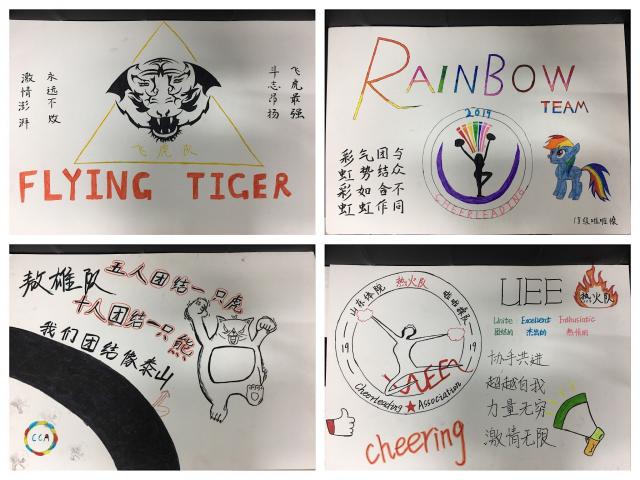 飞虎最强
斗志昂扬
永远不败
激情澎湃
飞虎队
FLYING TIGER
RAINBOW
TEAM
2019
CHEERLEADING
彩虹彩虹
气势如虹
团结合作
与众不同
18级啦啦操
敖雄队
五人团结一只虎
十人团结一只熊
我们团结像泰山
CCA
山东体院 热火队 啦啦操队
19 19
UEE
Cheerleading ★ Association
cheering
UEE
热火队
Unite Excellent Enthusiatic
团结的 杰出的 热情的
协手共进
超越自我
力量无穷
激情无限